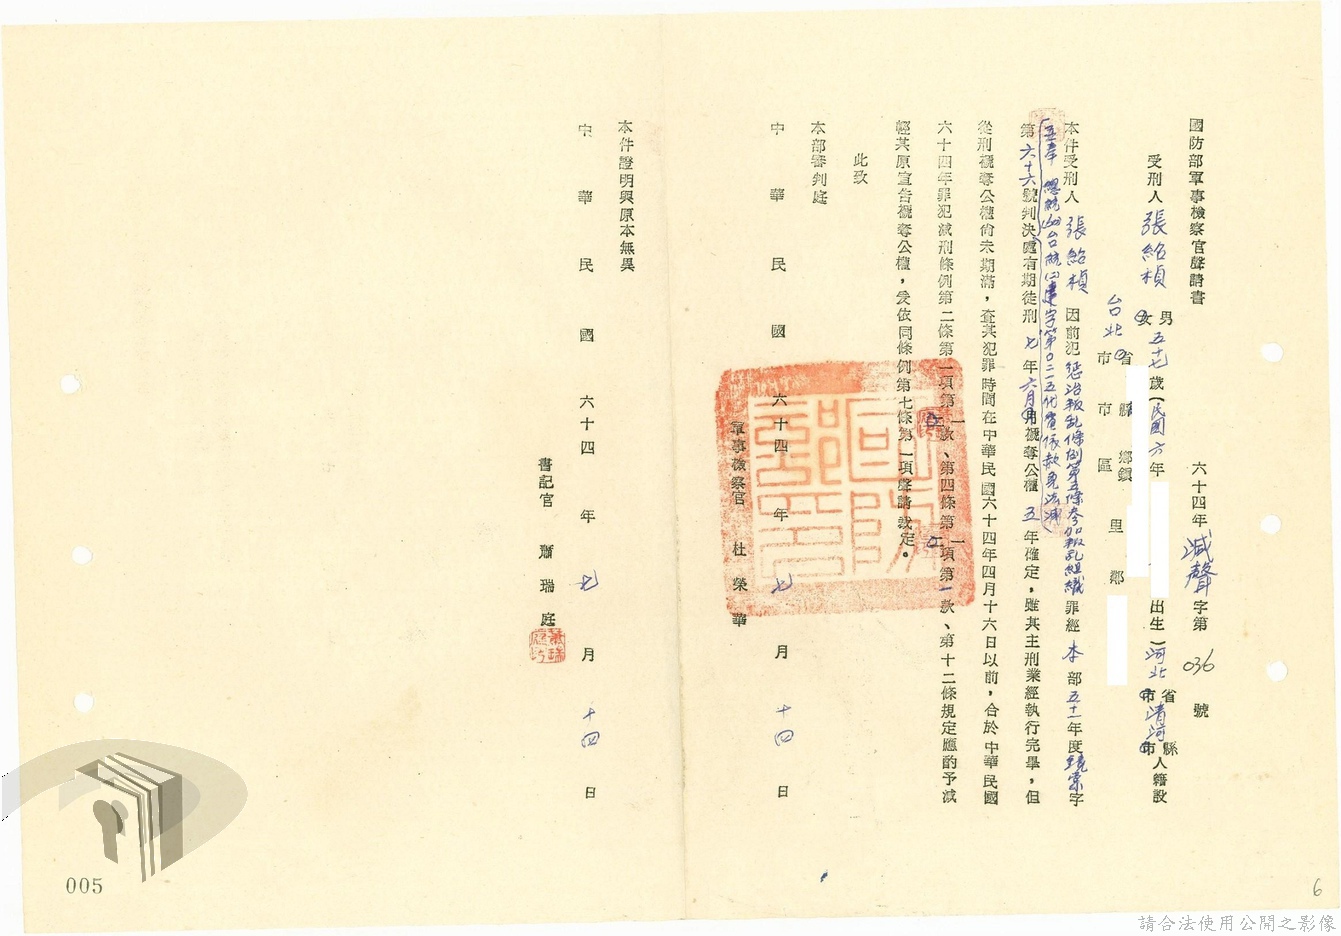 國防部軍事檢察官聲請書
六十四年減聲字第036號
受刑人張紹楨 男女 五十七歲(民國六年 出生)河北省市清河縣市人籍設
台北省市 縣市 鄉鎮區 里 鄰
本件受刑人張紹楨因前犯懲治叛亂條例第五條參加叛亂組織罪經本部五十一年度 字
第六十六號判決處有期徒刑七年六月褫奪公權五年確定,雖其主刑業經執行完畢,但
從刑褫奪公權尚未期滿,查其犯罪時間在中華民國六十四年四月十六日以前,合於中華民國
六十四年罪犯減刑條例第二條第一項第 款、第四條第 項第一款、第十二條規定應酌予減
輕其原宣告褫奪公權,爰依同條例第七條第一項聲請裁定。
此致
本部審判庭
中華民國六十四年七月十四日
軍事檢察官 杜榮華
本件證明與原本無異
中華民國六十四年七月十四日
書記官 蕭瑞庭
國防部
005
6
請合法使用公開之影像